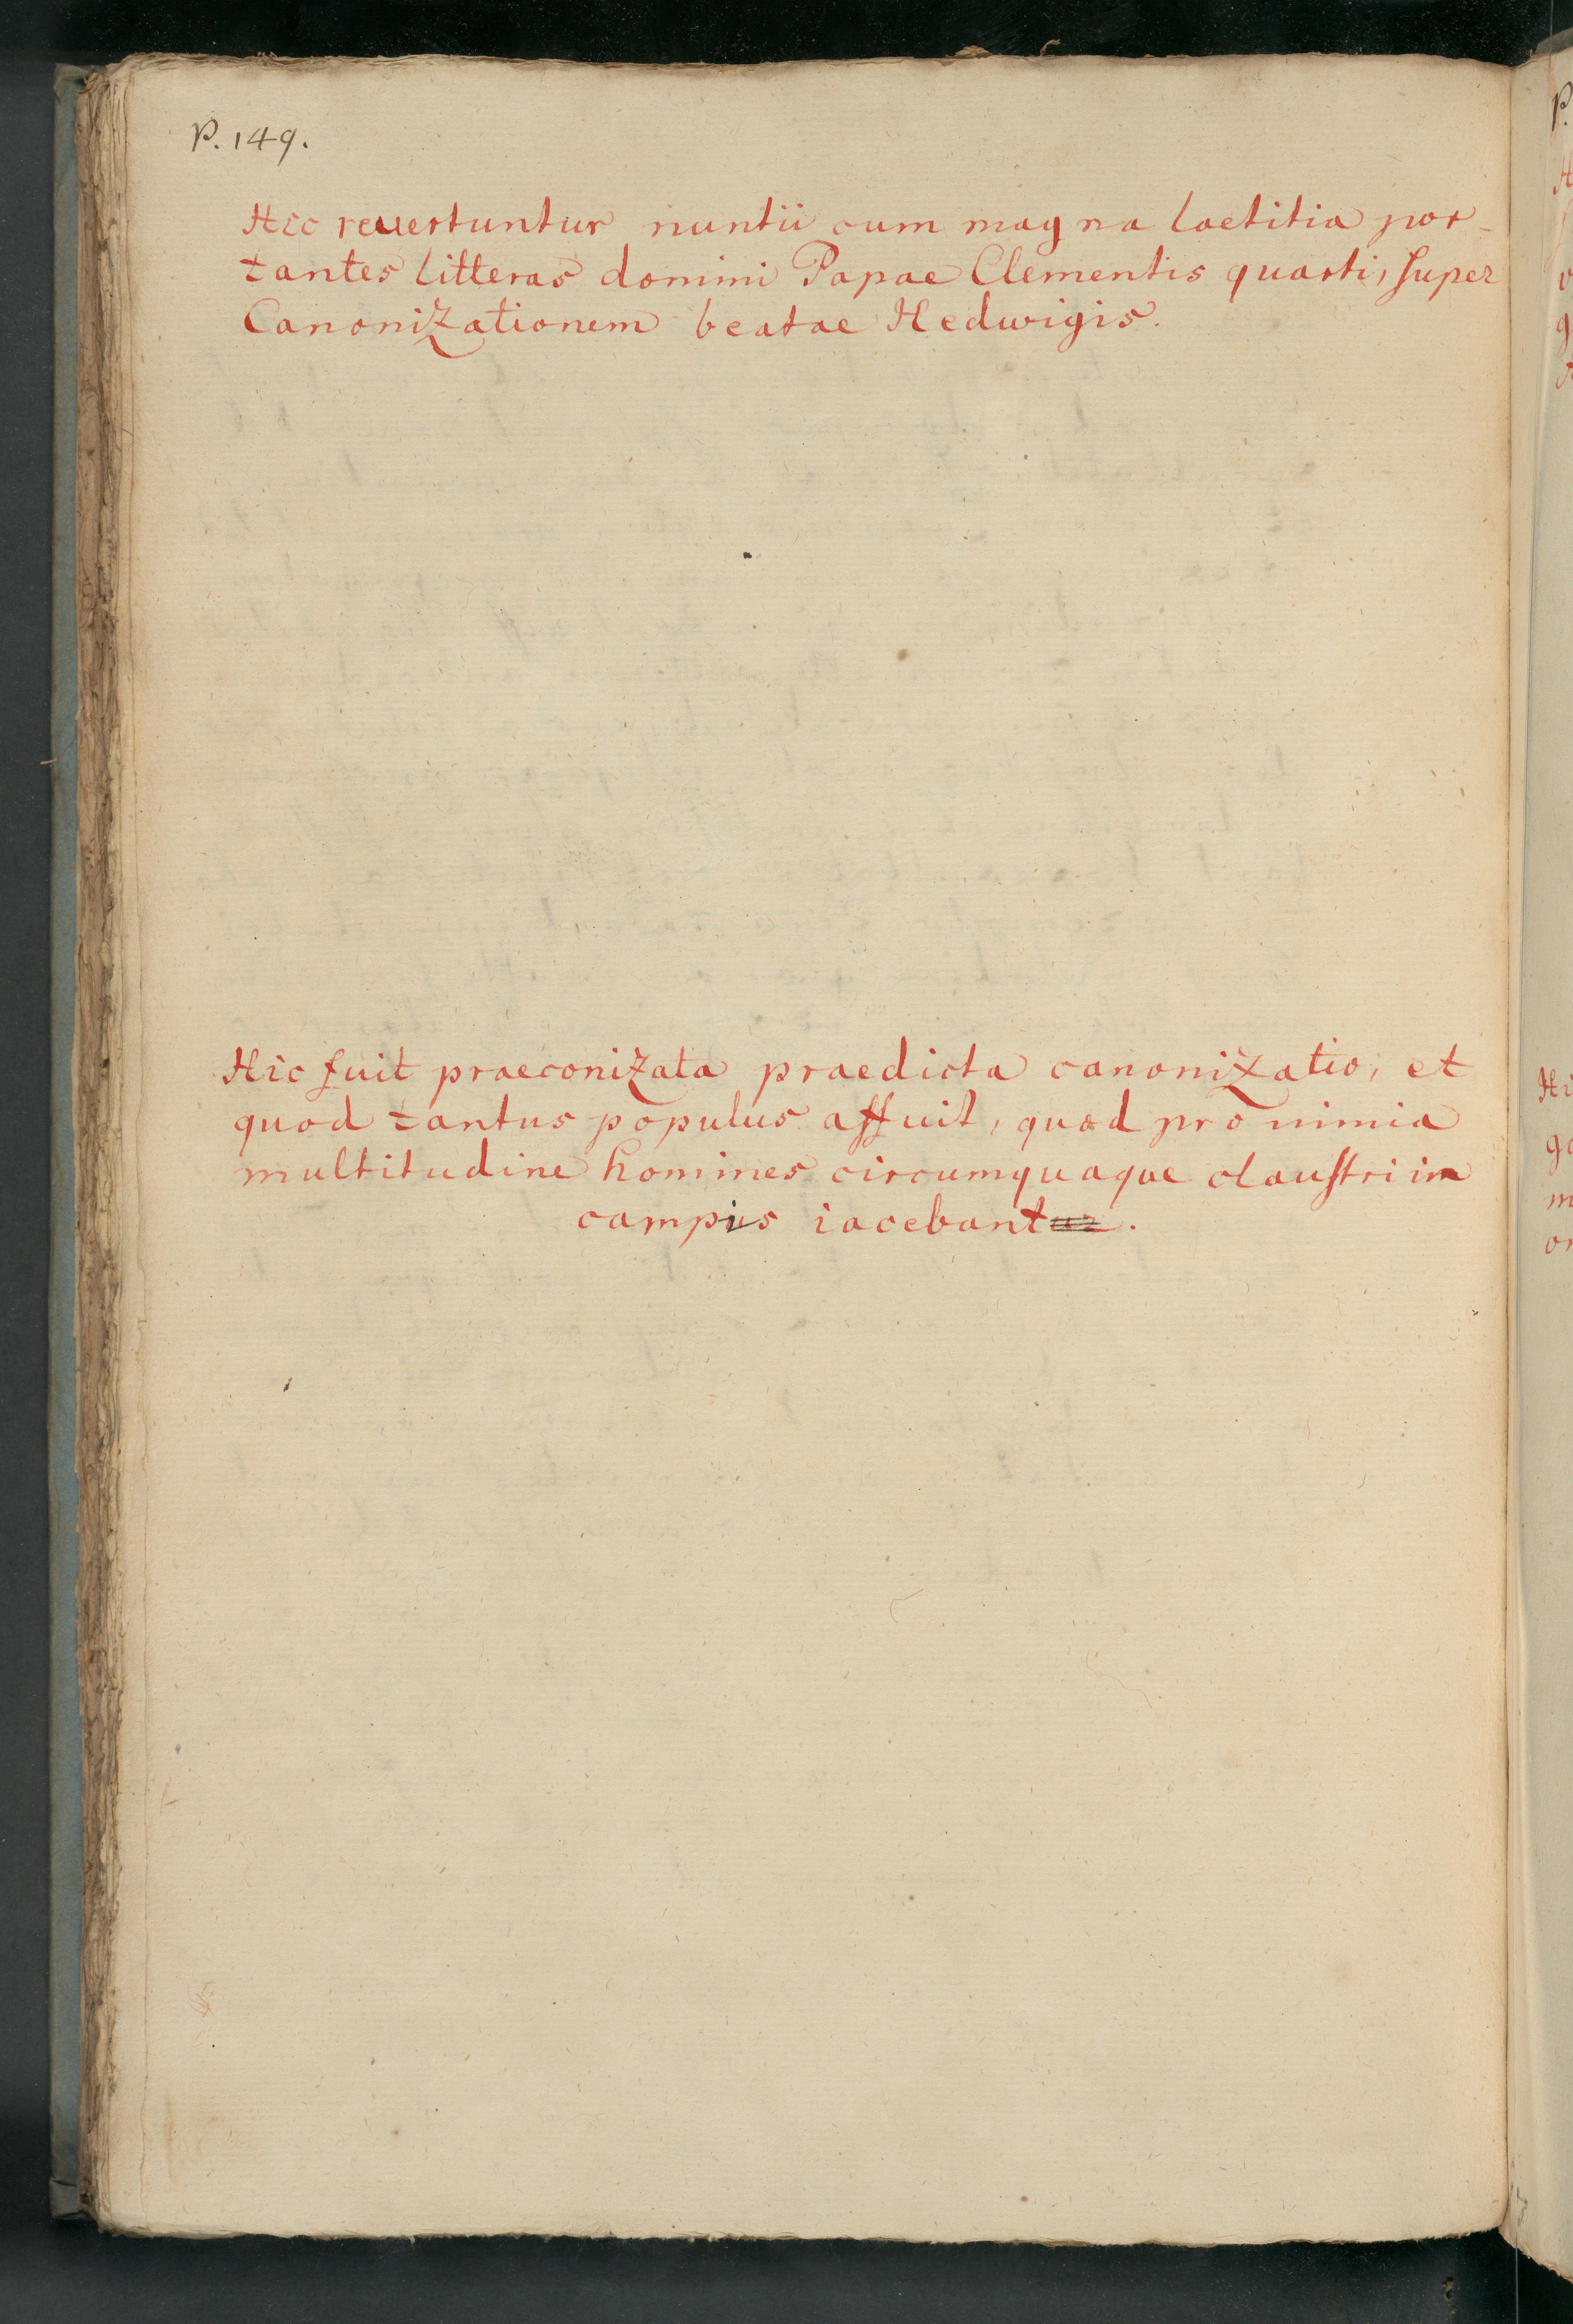 P. 149.
Hic reuertuntur nuntii cum magna laetitia por-
tantes litteras domini Papae Clementis quarti, ſuper
Canonizationem beatae Hedwigis.
Hic fuit praeconizata praedicta canonizatio, et
quod tantus populus affuit, quod pro nimia
multitudine homines circumquaque clauſtri in
campis iacebantur.